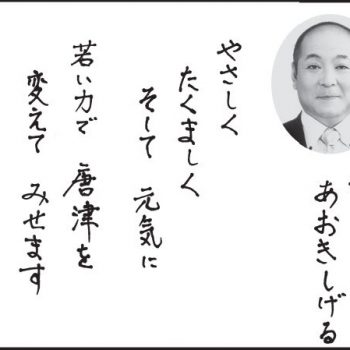 やさしく
たくましく
そして 元気に
若い力で 唐津を
変えて みせます
あおきしげる